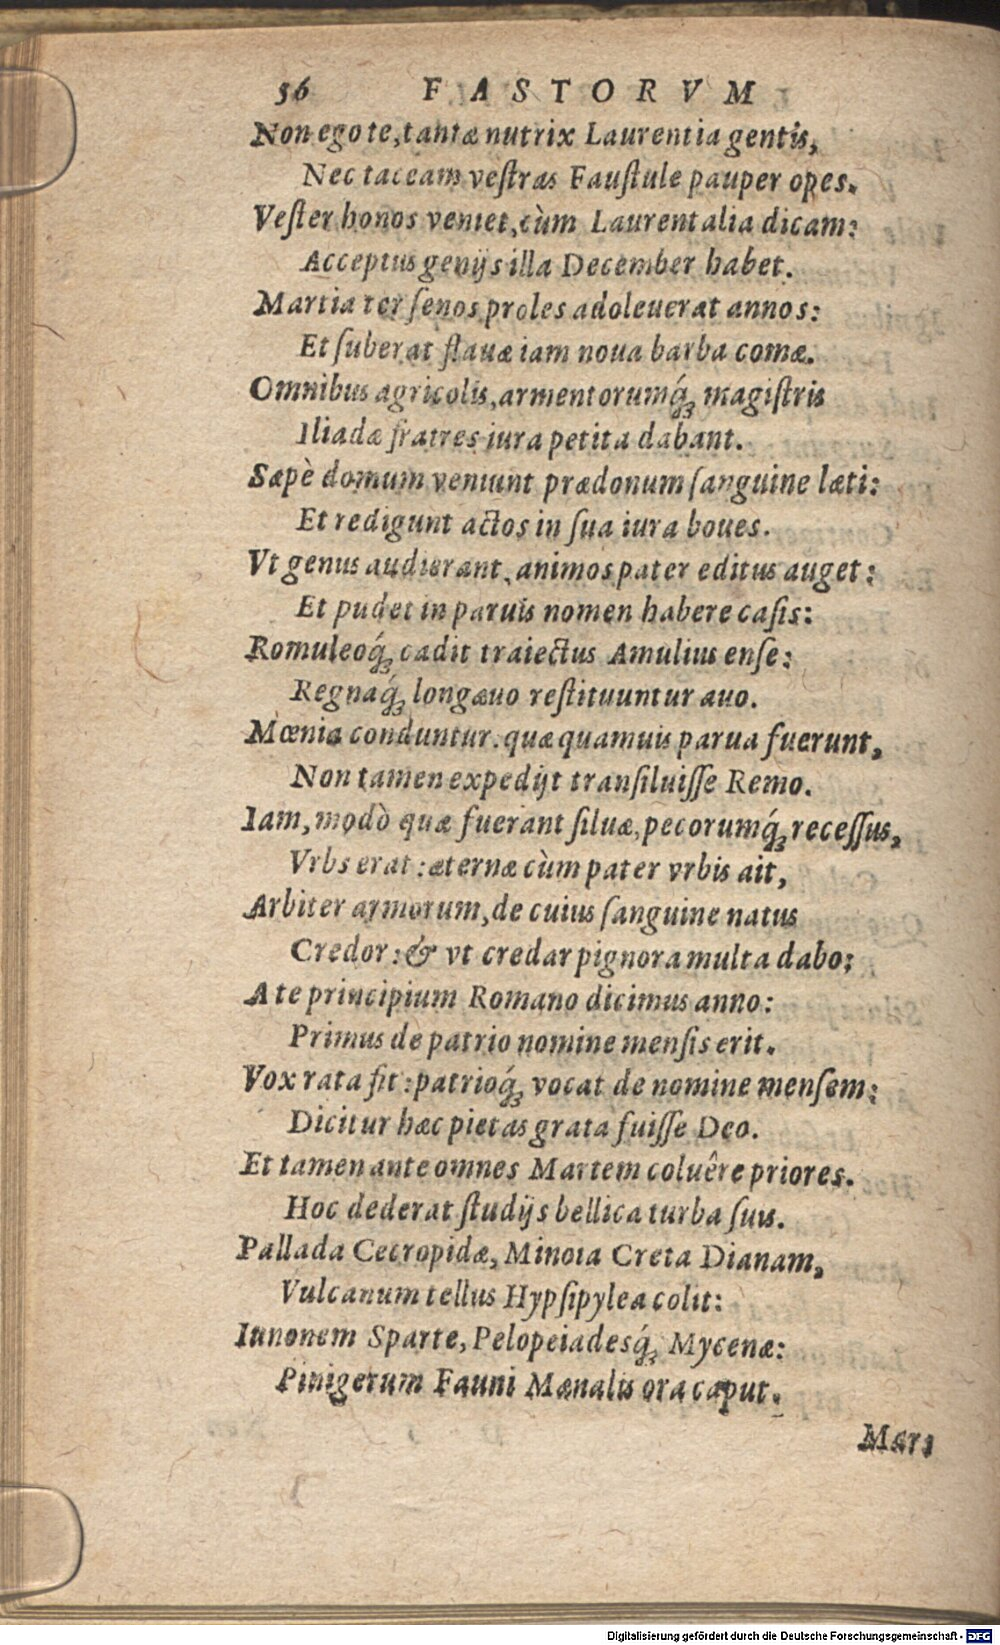 56 FASTORVM
Non ego te, tantæ nutrix Laurentia gentis,
Nec taceam veſtras Fauſtule pauper opes.
Veſter honos veniet, cùm Laurentalia dicam:
Acceptus genijs illa December habet.
Martia ter ſenos proles adoleuerat annos:
Et ſuberat flauæ iam noua barba comæ.
Omnibus agricolis, armentorumq́ꝫ magiſtris
Iliadæ fratres iura petita dabant.
Sæpè domum veniunt prædonum ſanguine læti:
Et redigunt actos in ſua iura boues.
Vt genus audierant, animos pater editus auget:
Et pudet in paruis nomen habere caſis:
Romuleoq́ꝫ cadit traiectus Amulius enſe:
Regnaq́ꝫ longæuo reſtituuntur auo.
Mœnia conduntur. quæ quamuis parua fuerunt,
Non tamen expedijt tranſiluiſſe Remo.
Iam, modò quæ fuerant ſiluæ, pecorumq́ꝫ receſſus,
Vrbs erat: æternæ cùm pater vrbis ait,
Arbiter armorum, de cuius ſanguine natus
Credor: & vt credar pignora multa dabo:
A te principium Romano dicimus anno:
Primus de patrio nomine menſis erit.
Vox rata fit: patrioq́ꝫ vocat de nomine menſem:
Dicitur hæc pietas grata fuiſſe Deo.
Et tamen ante omnes Martem coluêre priores.
Hoc dederat ſtudijs bellica turba ſuis.
Pallada Cecropidæ, Minoia Creta Dianam,
Vulcanum tellus Hypſipylea colit:
Iunonem Sparte, Pelopeiadesq́ꝫ Mycenæ:
Pinigerum Fauni Mænalis ora caput.
Mars
Digitalisierung gefördert durch die Deutsche Forschungsgemeinschaft - DFG